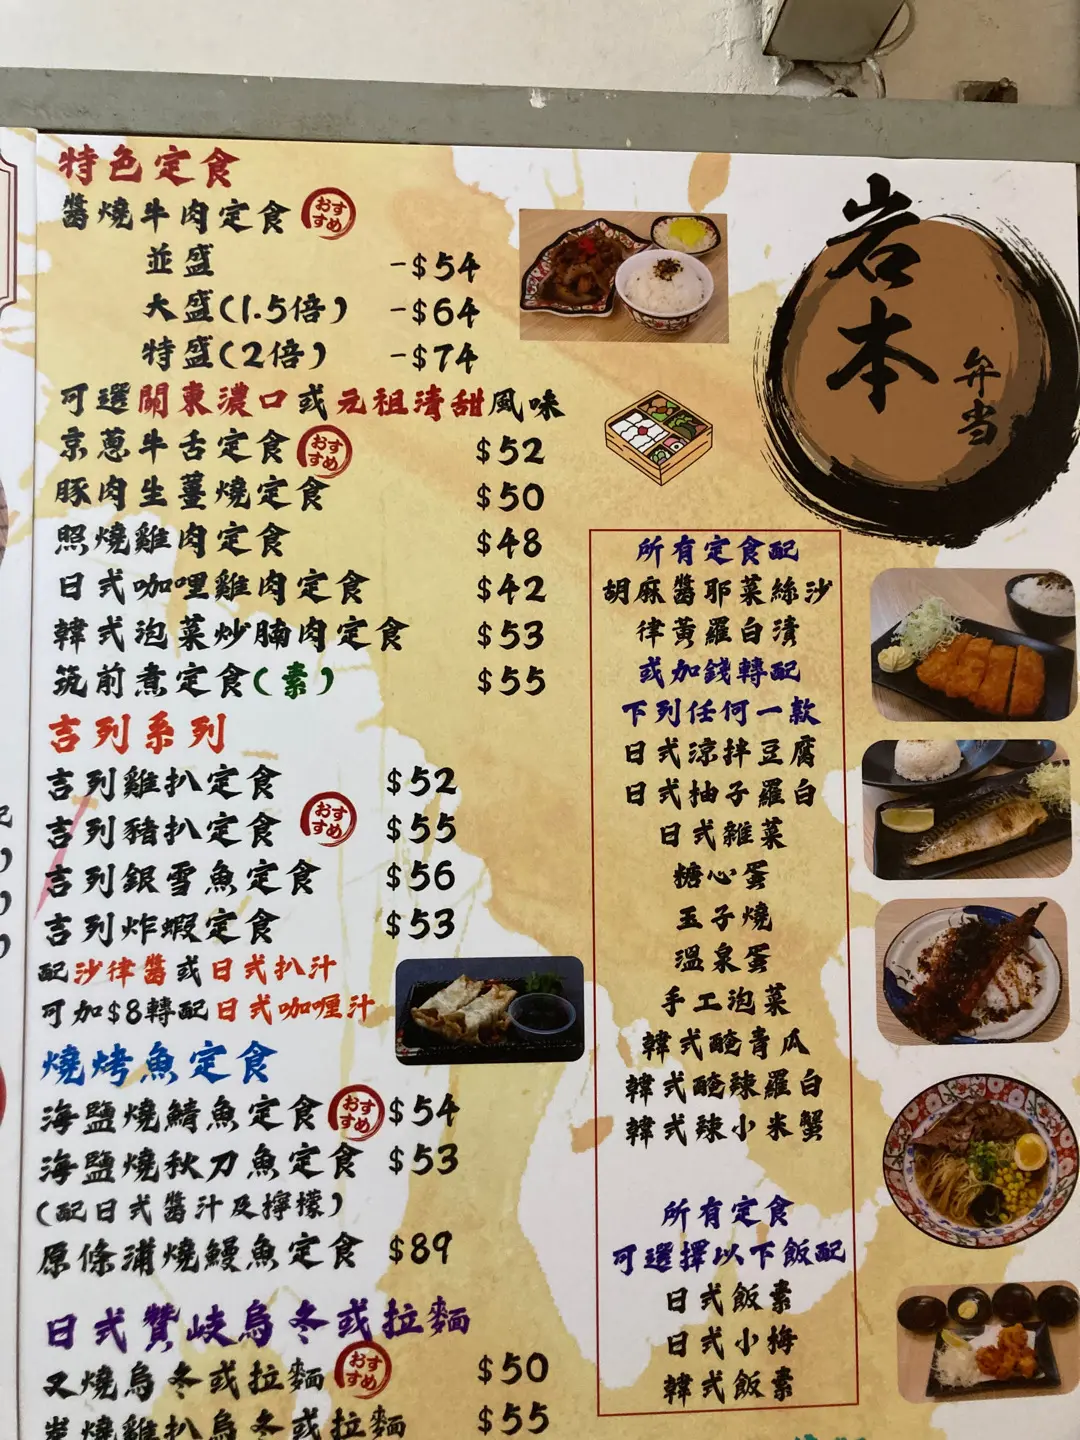 特色定食
醬燒牛肉定食 おすすめ
並盛 -$54
大盛(1.5倍) -$64
特盛(2倍) -$74
可選關東濃口或元祖清甜風味
京蔥牛舌定食 おすすめ $52
豚肉生薑燒定食 $50
照燒雞肉定食 $48
日式咖哩雞肉定食 $42
韓式泡菜炒腩肉定食 $53
筑前煮定食(素) $55
吉列系列
吉列雞扒定食 $52
吉列豬扒定食 おすすめ $55
吉列銀雪魚定食 $56
吉列炸蝦定食 $53
配沙律醬或日式扒汁
可加$8轉配日式咖喱汁
燒烤魚定食
海鹽燒鯖魚定食 おすすめ $54
海鹽燒秋刀魚定食 $53
(配日式醬汁及檸檬)
原條蒲燒鰻魚定食 $89
日式贊岐烏冬或拉麵
叉燒烏冬或拉麵 おすすめ $50
炭燒雞扒烏冬或拉麵 $55
岩本
弁当
所有定食配
胡麻醬耶菜絲沙
律黃羅白漬
或加錢轉配
下列任何一款
日式涼拌豆腐
日式柚子羅白
日式雜菜
糖心蛋
玉子燒
溫泉蛋
手工泡菜
韓式醃青瓜
韓式醃辣羅白
韓式辣小米蟹
所有定食
可選擇以下飯配
日式飯素
日式小梅
韓式飯素